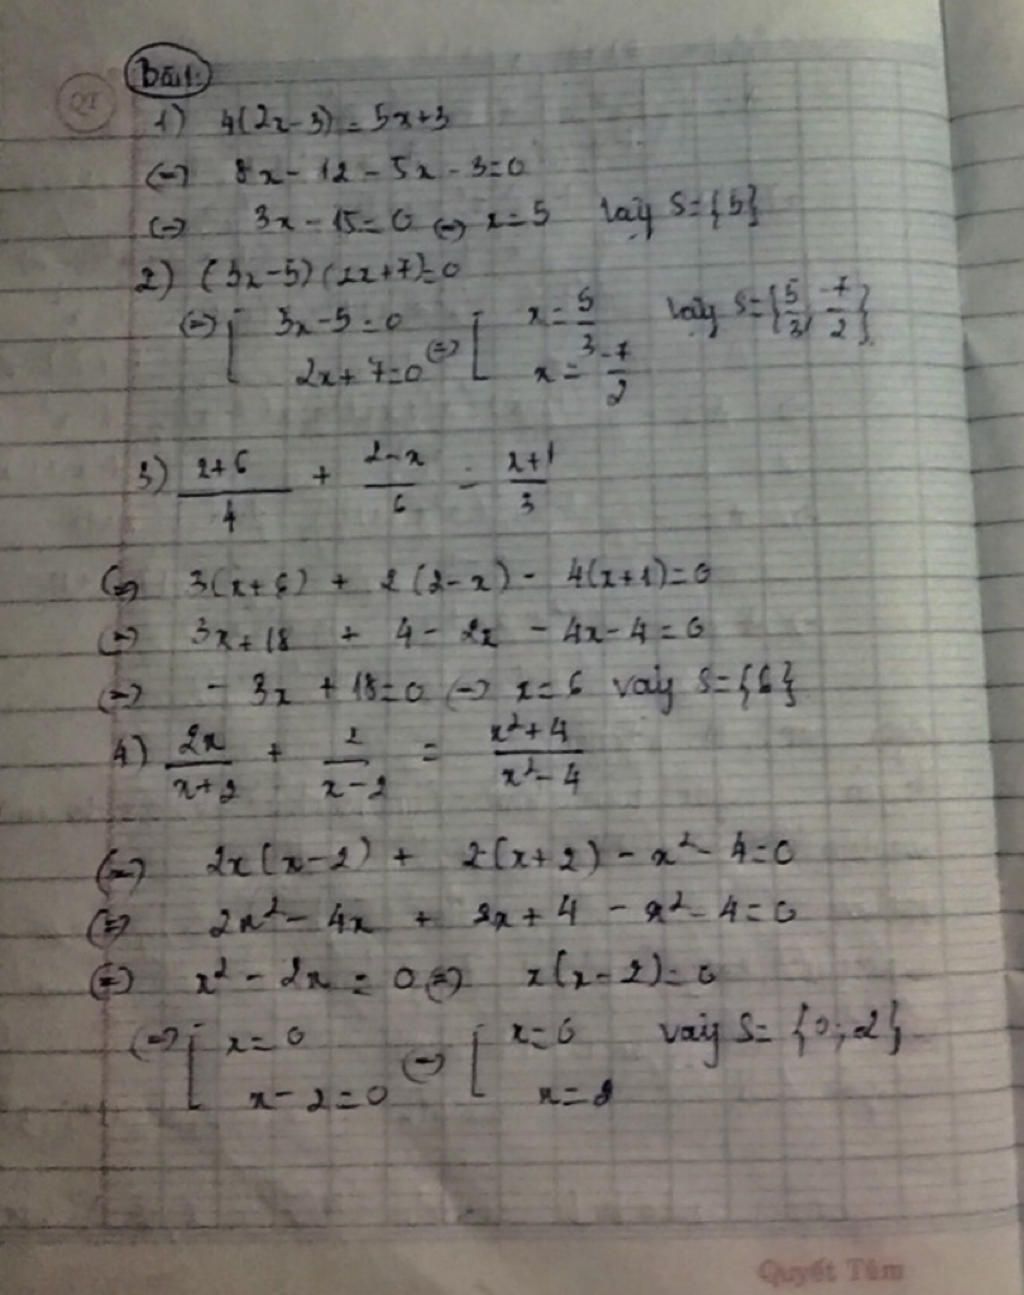 Bài 1:
1) 4(2x-3) = 5x+3
(=) 8x - 12 - 5x - 3 = 0
(=) 3x - 15 = 0 (=) x = 5 vậy S={5}
2) (3x-5)(2x+7)=0
(=) [ 3x-5=0 (=) [ x = 5/3 vậy S={5/3, -7/2}
2x+7=0 x = -7/2
3) x+6/4 + 2-x/6 = x+1/3
(=) 3(x+6) + 2(2-x) - 4(x+1)=0
(=) 3x+18 + 4 - 2x - 4x-4=0
(=) - 3x + 18=0 (=) x=6 vậy S={6}
4) 2x/x+2 + 2/x-2 = x²+4/x²-4
(=) 2x(x-2) + 2(x+2) - x² - 4=0
(=) 2x² - 4x + 2x+4 - x² - 4=0
(=) x² - 2x = 0 (=) x(x-2)=0
(=) [ x=0 (=) [ x=0 vậy S= {0;2}
x-2=0 x=2
Quyết Tâm